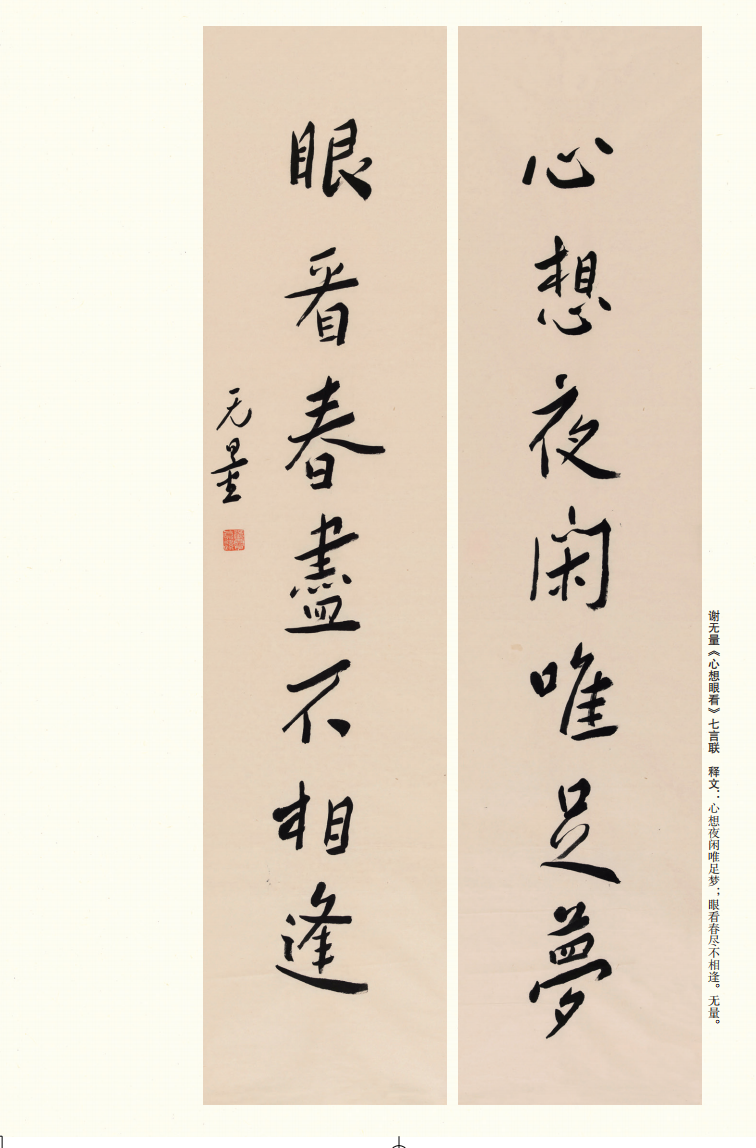 心想夜闲唯足夢
眼看春盡不相逢
无量
谢无量《心想眼看》七言联　释文：心想夜闲唯足梦；眼看春尽不相逢。无量。